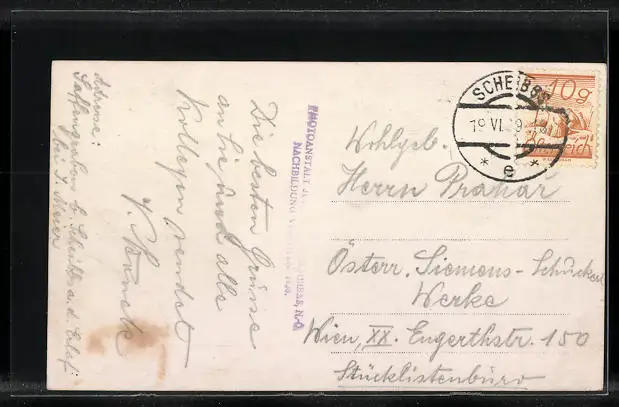 Adresse:
b. Scheibbs a. d. Erlaf
bei J. Meier
Die besten Grüsse
an Sie und alle
Kollegen sendet
PHOTOANSTALT
NACHBILDUNG
SCHEIBBS, N.-Ö.
SCHEIBBS
19.VI.
* e *
10g
Österreich
Wohlgeb.
Herrn Prahar
Österr. Siemens-Schuckert
Werke
Wien, XX. Engerthstr. 150
Stücklistenbüro